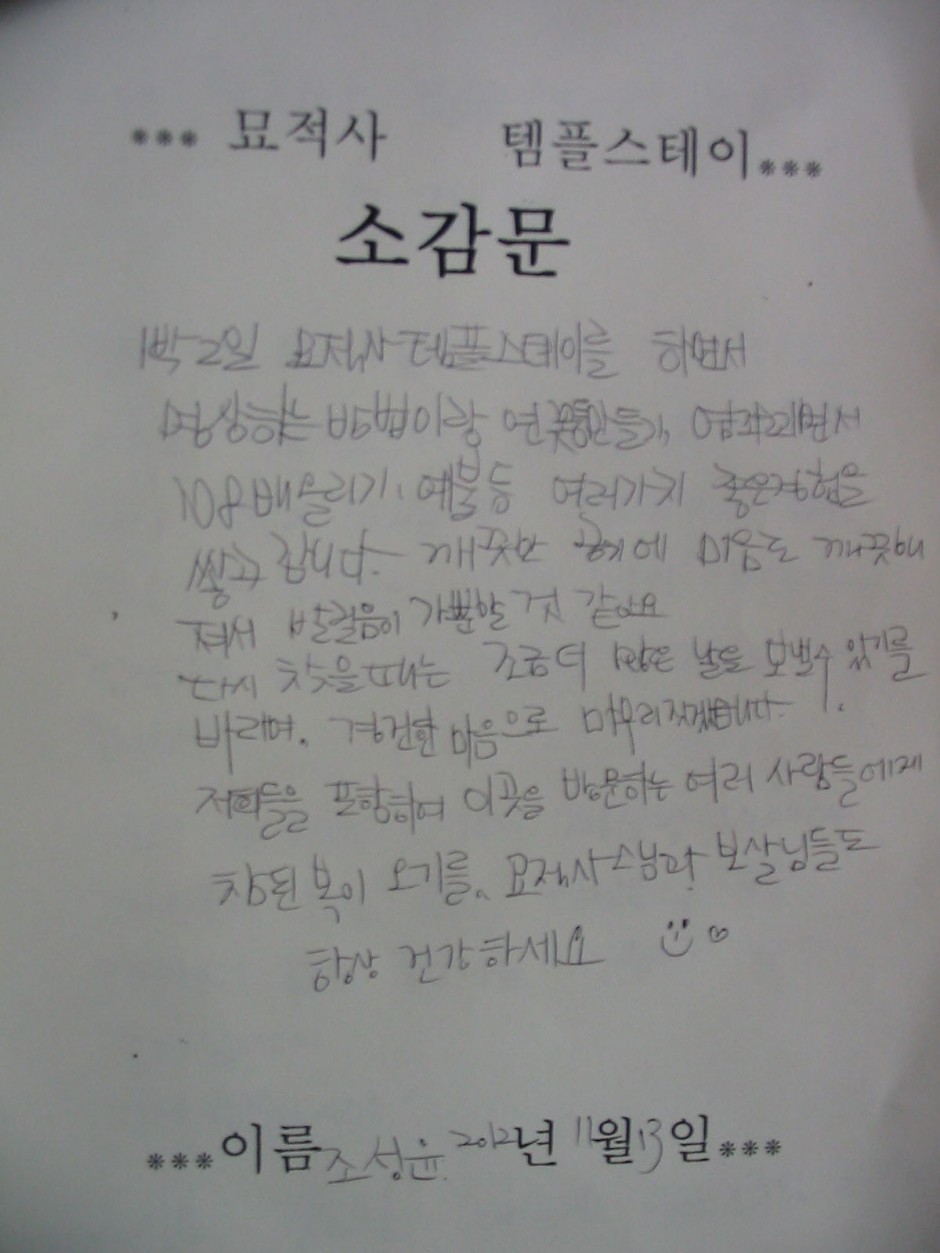 *** 묘적사 템플스테이***
소감문
1박2일 묘적사 템플스테이를 하면서
명상하는 방법이랑 연꽃등만들기, 염주꿰면서
108배 올리기, 예불 등 여러가지 좋은경험을
쌓고 갑니다. 깨끗한 공기에 마음도 깨끗해
져서 발걸음이 가뿐할 것 같아요
다시 찾을때는 조금더 많은 날을 보낼수 있기를
바라며. 경건한 마음으로 마무리 짓겠습니다.
저희들을 포함하여 이곳을 방문하는 여러 사람들에게
참된 복이 오기를. 묘적사스님과 보살님들도
항상 건강하세요
***이름 조성윤. 2012년 11월 13일***